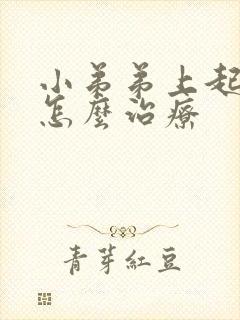 小弟弟上起
怎麼治療
青芽紅豆